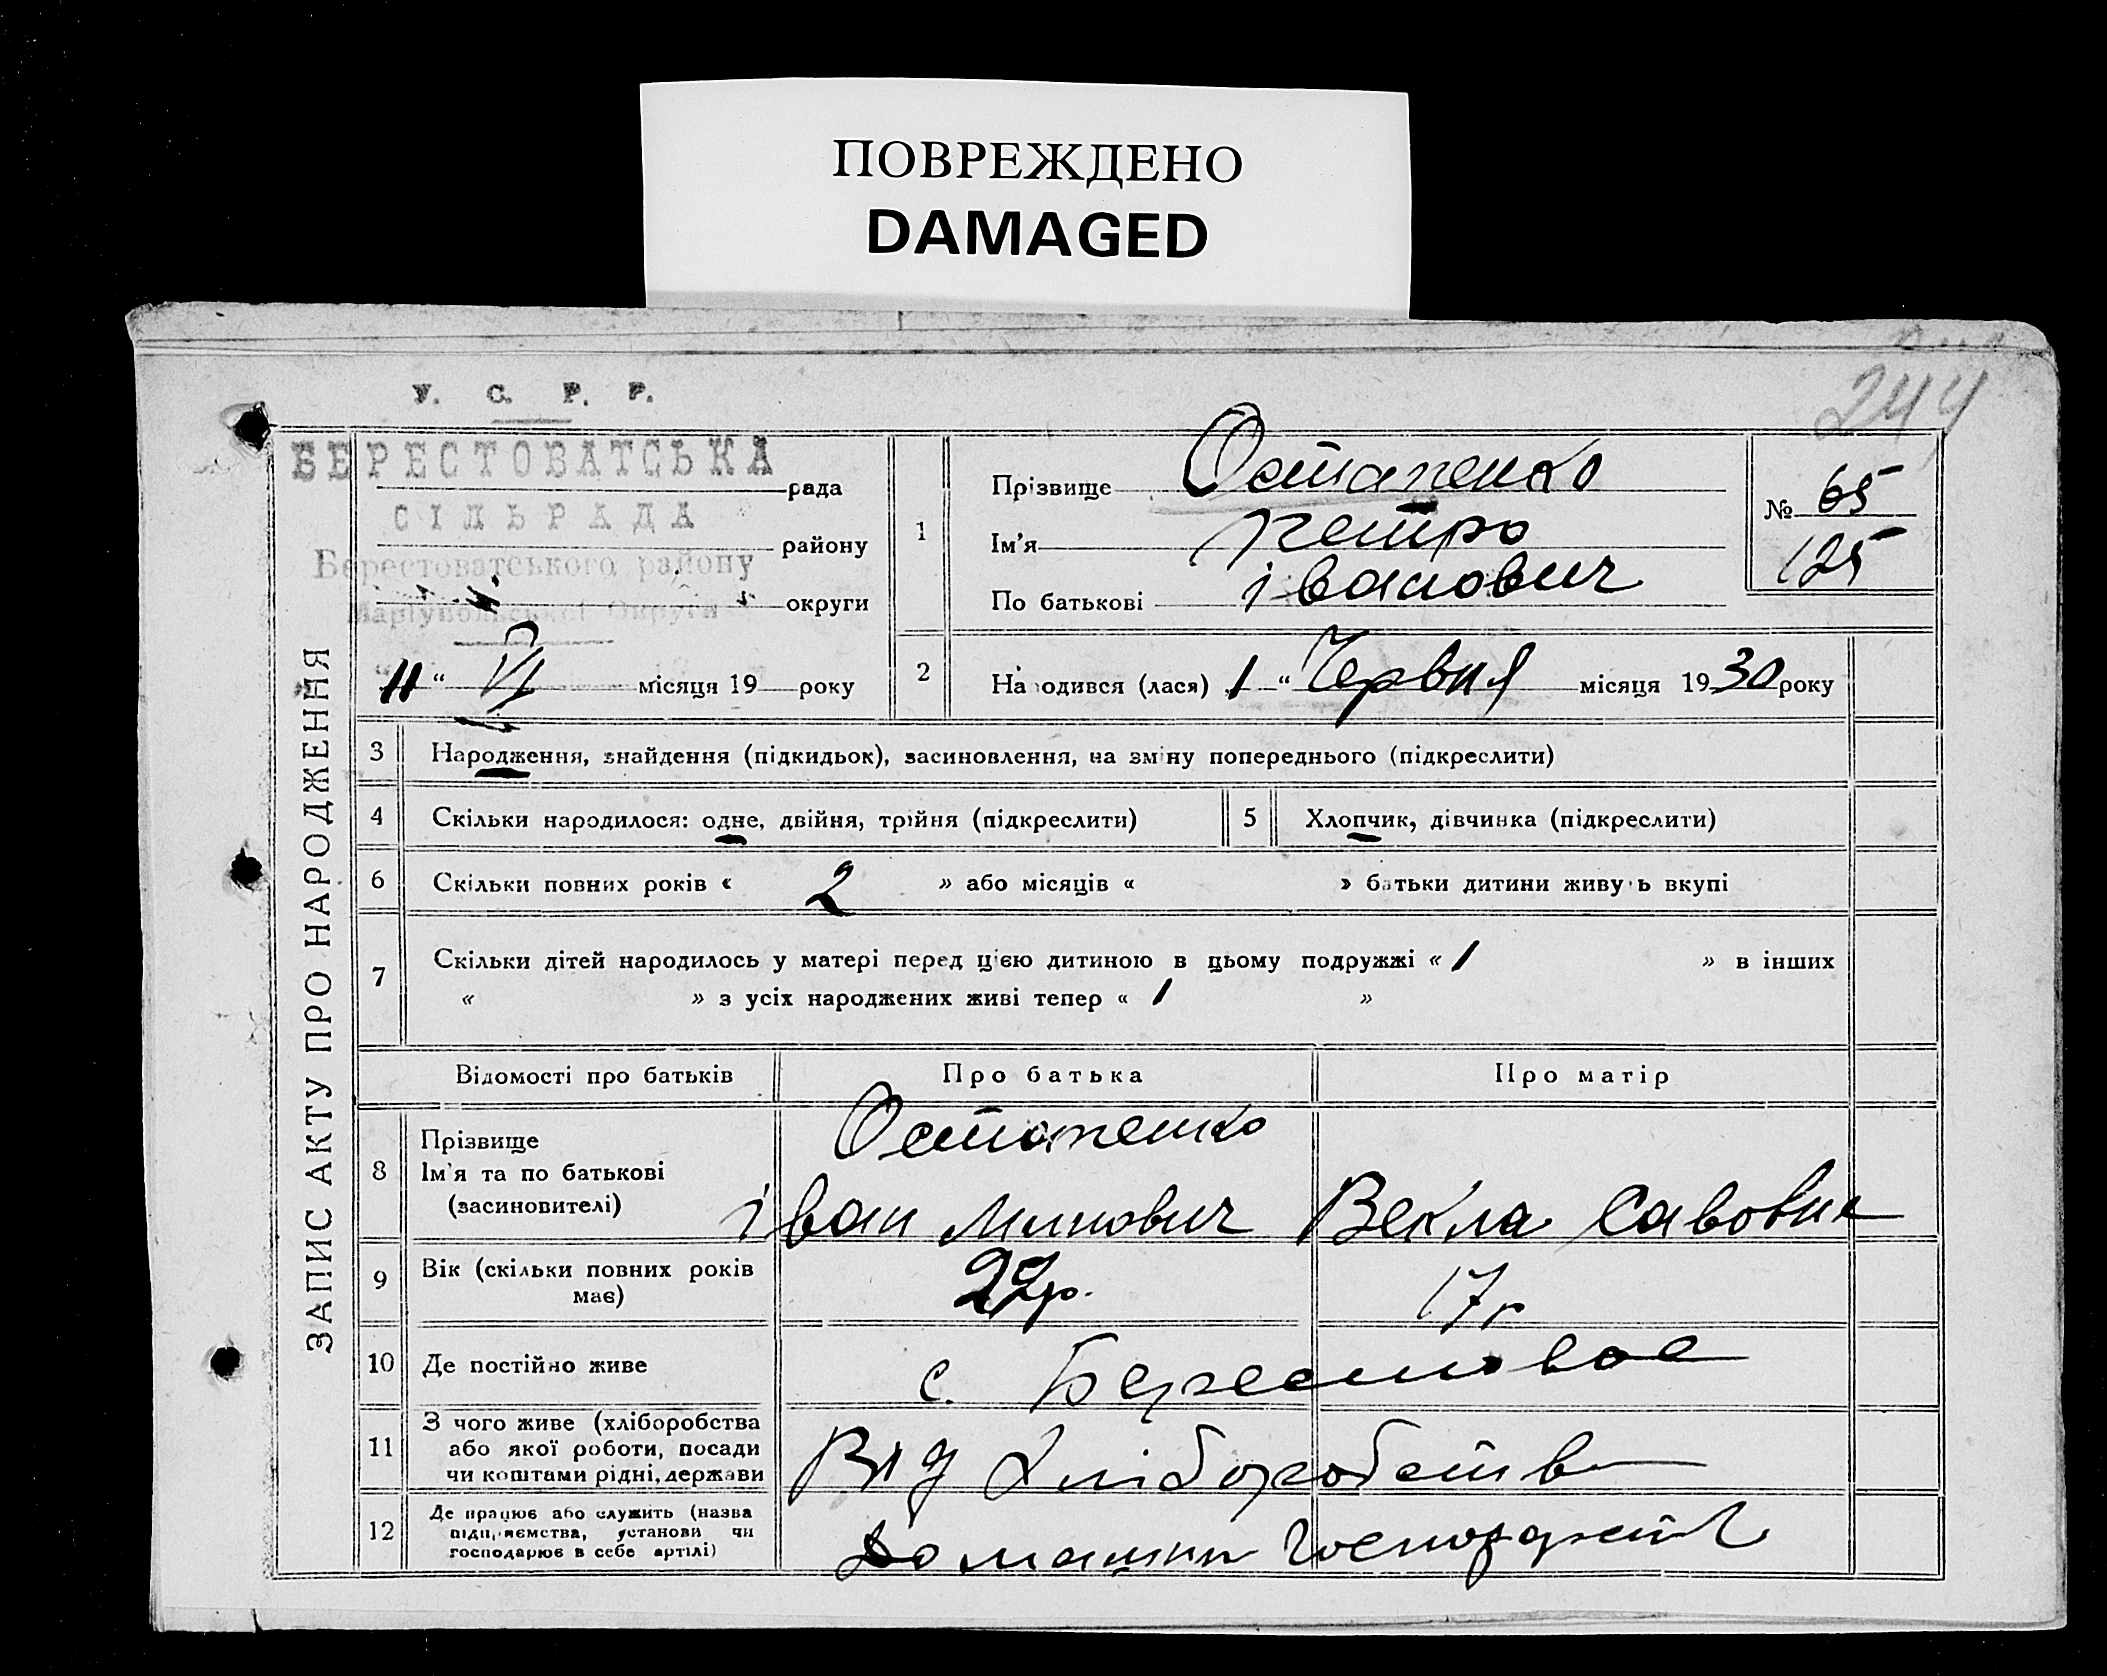 ПОВРЕЖДЕНО
DAMAGED
244
У. С. Р. Р.
БЕРЕСТОВАТСЬКА
рада
СІЛЬРАДА
району
Берестоватського району
округи
Маріупольської Округи
11 " VI місяця 19 року
ЗАПИС АКТУ ПРО НАРОДЖЕННЯ
1
Прізвище Остапенко
Ім'я Петро
По батькові Іванович
№ 65
125
2 Народився (лася) 1 " Червня місяця 1930 року
3 Народження, знайдення (підкидьок), засиновлення, на зміну попереднього (підкреслити)
4 Скільки народилося: одне, двійня, трійня (підкреслити) 5 Хлопчик, дівчинка (підкреслити)
6 Скільки повних років « 2 » або місяців « » батьки дитини живуть вкупі
7 Скільки дітей народилось у матері перед цією дитиною в цьому подружжі « 1 » в інших
« » з усіх народжених живі тепер « 1 »
Відомості про батьків Про батька Про матір
8 Прізвище
Ім'я та по батькові
(засиновителі)
Остапенко
Іван Минович Векла Савовна
9 Вік (скільки повних років
має)
22р. 17р
10 Де постійно живе с. Берестовое
11 З чого живе (хліборобства
або якої роботи, посади
чи коштами рідні, держави
Від Хліборобств
12 Де працює або служить (назва
підприємства, установи чи
господарює в себе артілі)
Домашни